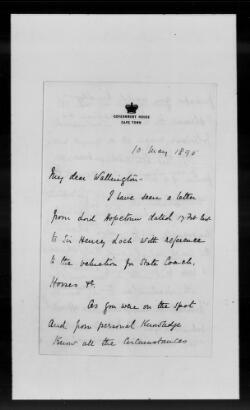 GOVERNMENT HOUSE
CAPE TOWN
10 May 1895
My dear Wallington
I have seen a letter
from Lord Hopetoun dated
to Sir Henry Loch with reference
to the valuation for State Coach,
Horses &c.
As you were on the spot
and from personal knowledge
know all the circumstances